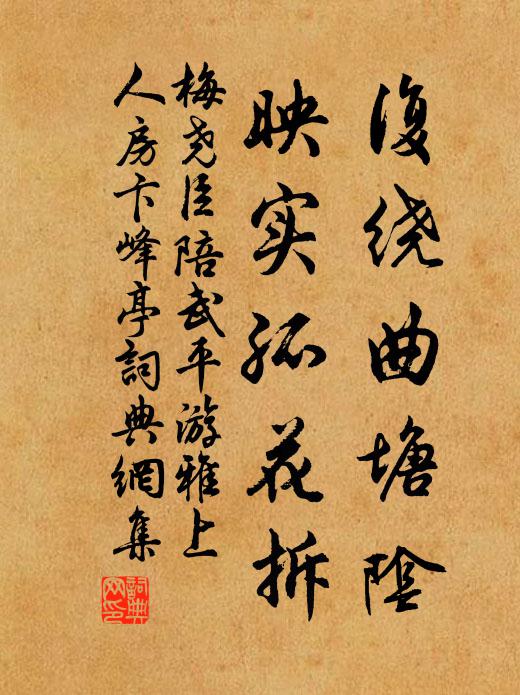 復绕曲塘陰
映实孤花拆
梅尧臣陪武平游雅上
人房卞峰亭詞典網集
詞典
网印